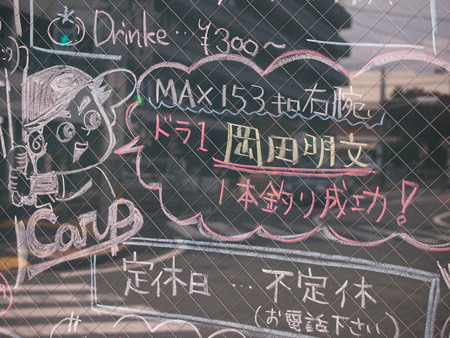 Drinke…¥300〜
MAX153キロ右腕
ドラ1 岡田明丈
1本釣り成功!
Carp
定休日…不定休
(お電話下さい)